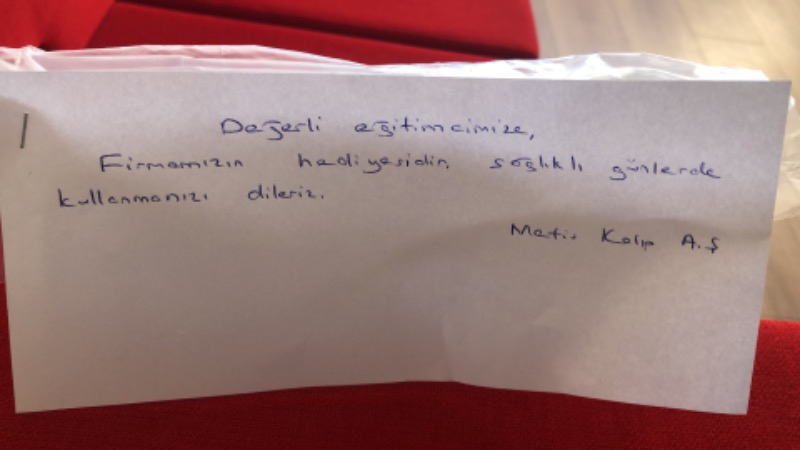 Değerli eğitimcimize,
Firmamızın hediyesidir. sağlıklı günlerde
kullanmanızı dileriz.
Kalıp A.Ş